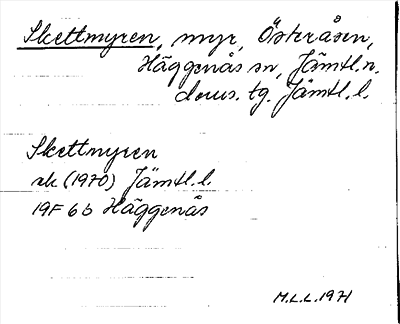 Skettmyren, myr, Österåsen,
Häggenås sn, Jämtl.n.
doms. tg. Jämtl.l.
Skettmyren
ek (1970) Jämtl.l.
19F 6b Häggenås
M.L.L. 1971